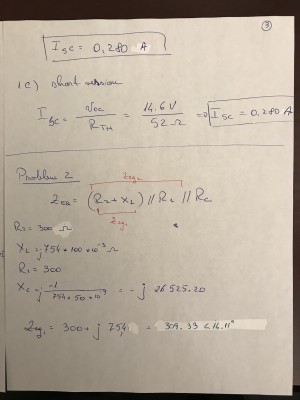 ③
I sc = 0,280 A
1c) short version
I sc = Voc / R TH = 14.6 V / 52 Ω => I sc = 0.280 A
Problem 2
Zeq2
Zeq = (R2 + XL) // R1 // Rc
Zeq1
R2 = 300 Ω
XL = j 754 * 100 * 10⁻³ Ω
R1 = 300
Xc = j -1 / 754 * 50 * 10 = - j 26 525.20
Zeq1 = 300 + j 75,4 = 309.33 < 14.11°